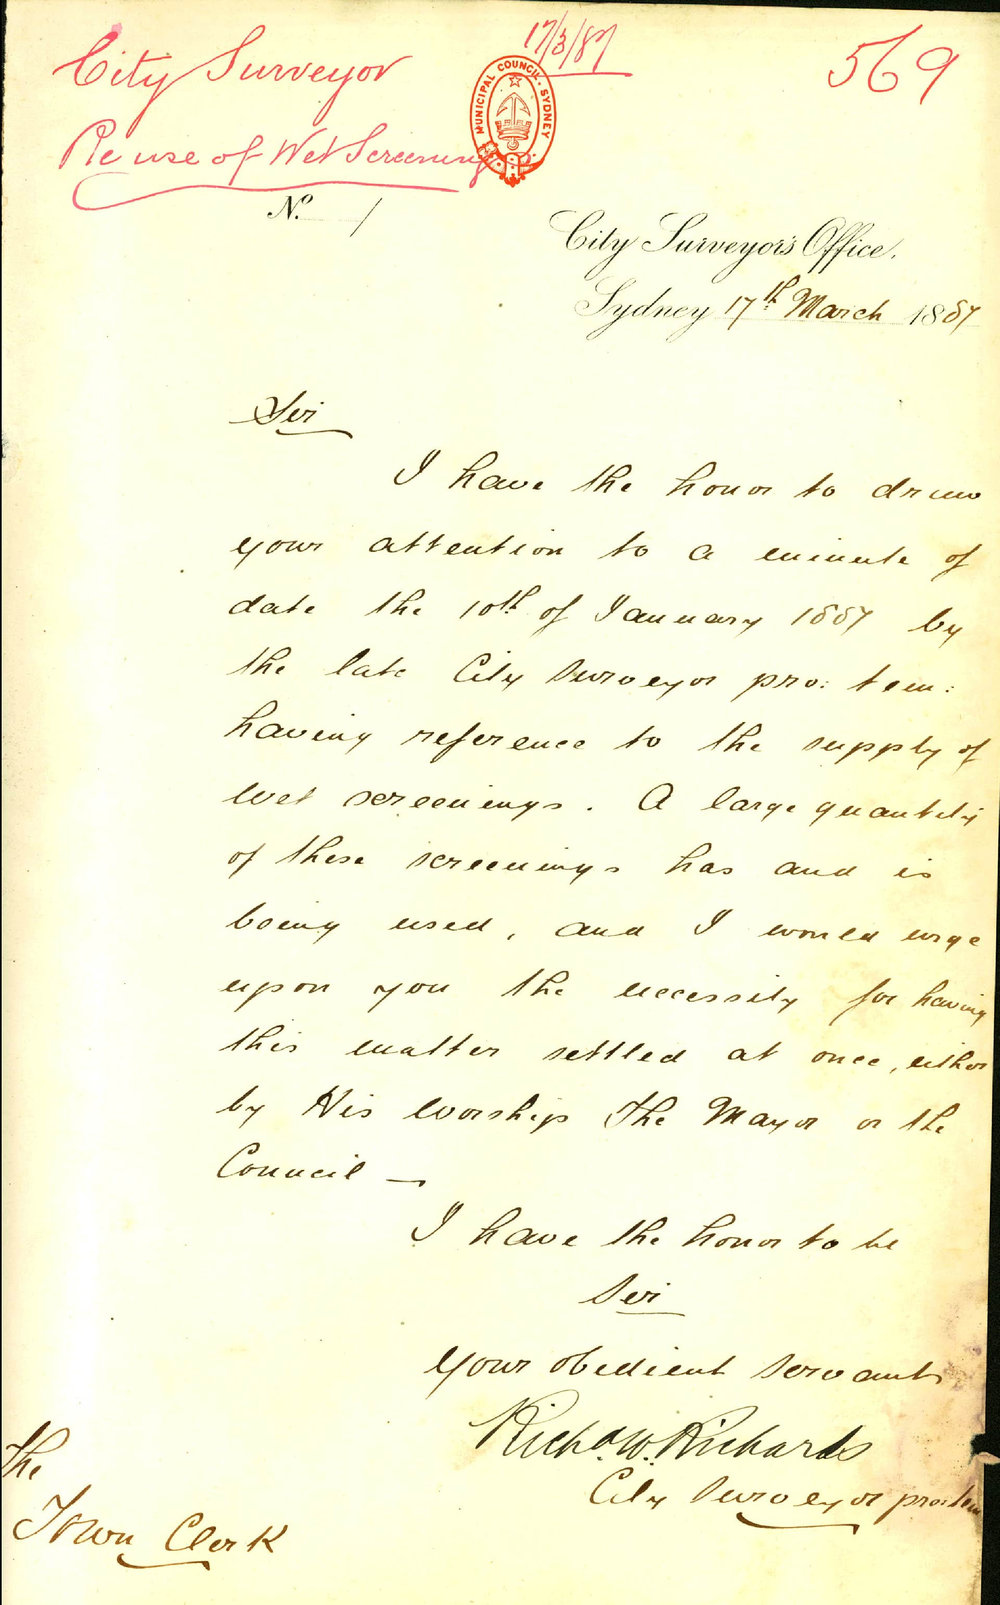 17/3/87
City Surveyor
569
MUNICIPAL COUNCIL · SYDNEY
Re use of Wet Screenings
No. 1
City Surveyor's Office.
Sydney 17th March 1887
Sir
I have the honor to draw
your attention to a minute of
date the 10th of January 1887 by
the late City Surveyor pro: tem:
having reference to the supply of
wet screenings. A large quantity
of these screenings has and is
being used, and I would urge
upon you the necessity for having
this matter settled at once, either
by His Worship The Mayor or the
Council —
I have the honor to be
Sir
Your obedient Servant
Richd. W. Richards
City Surveyor pro: tem
The
Town Clerk